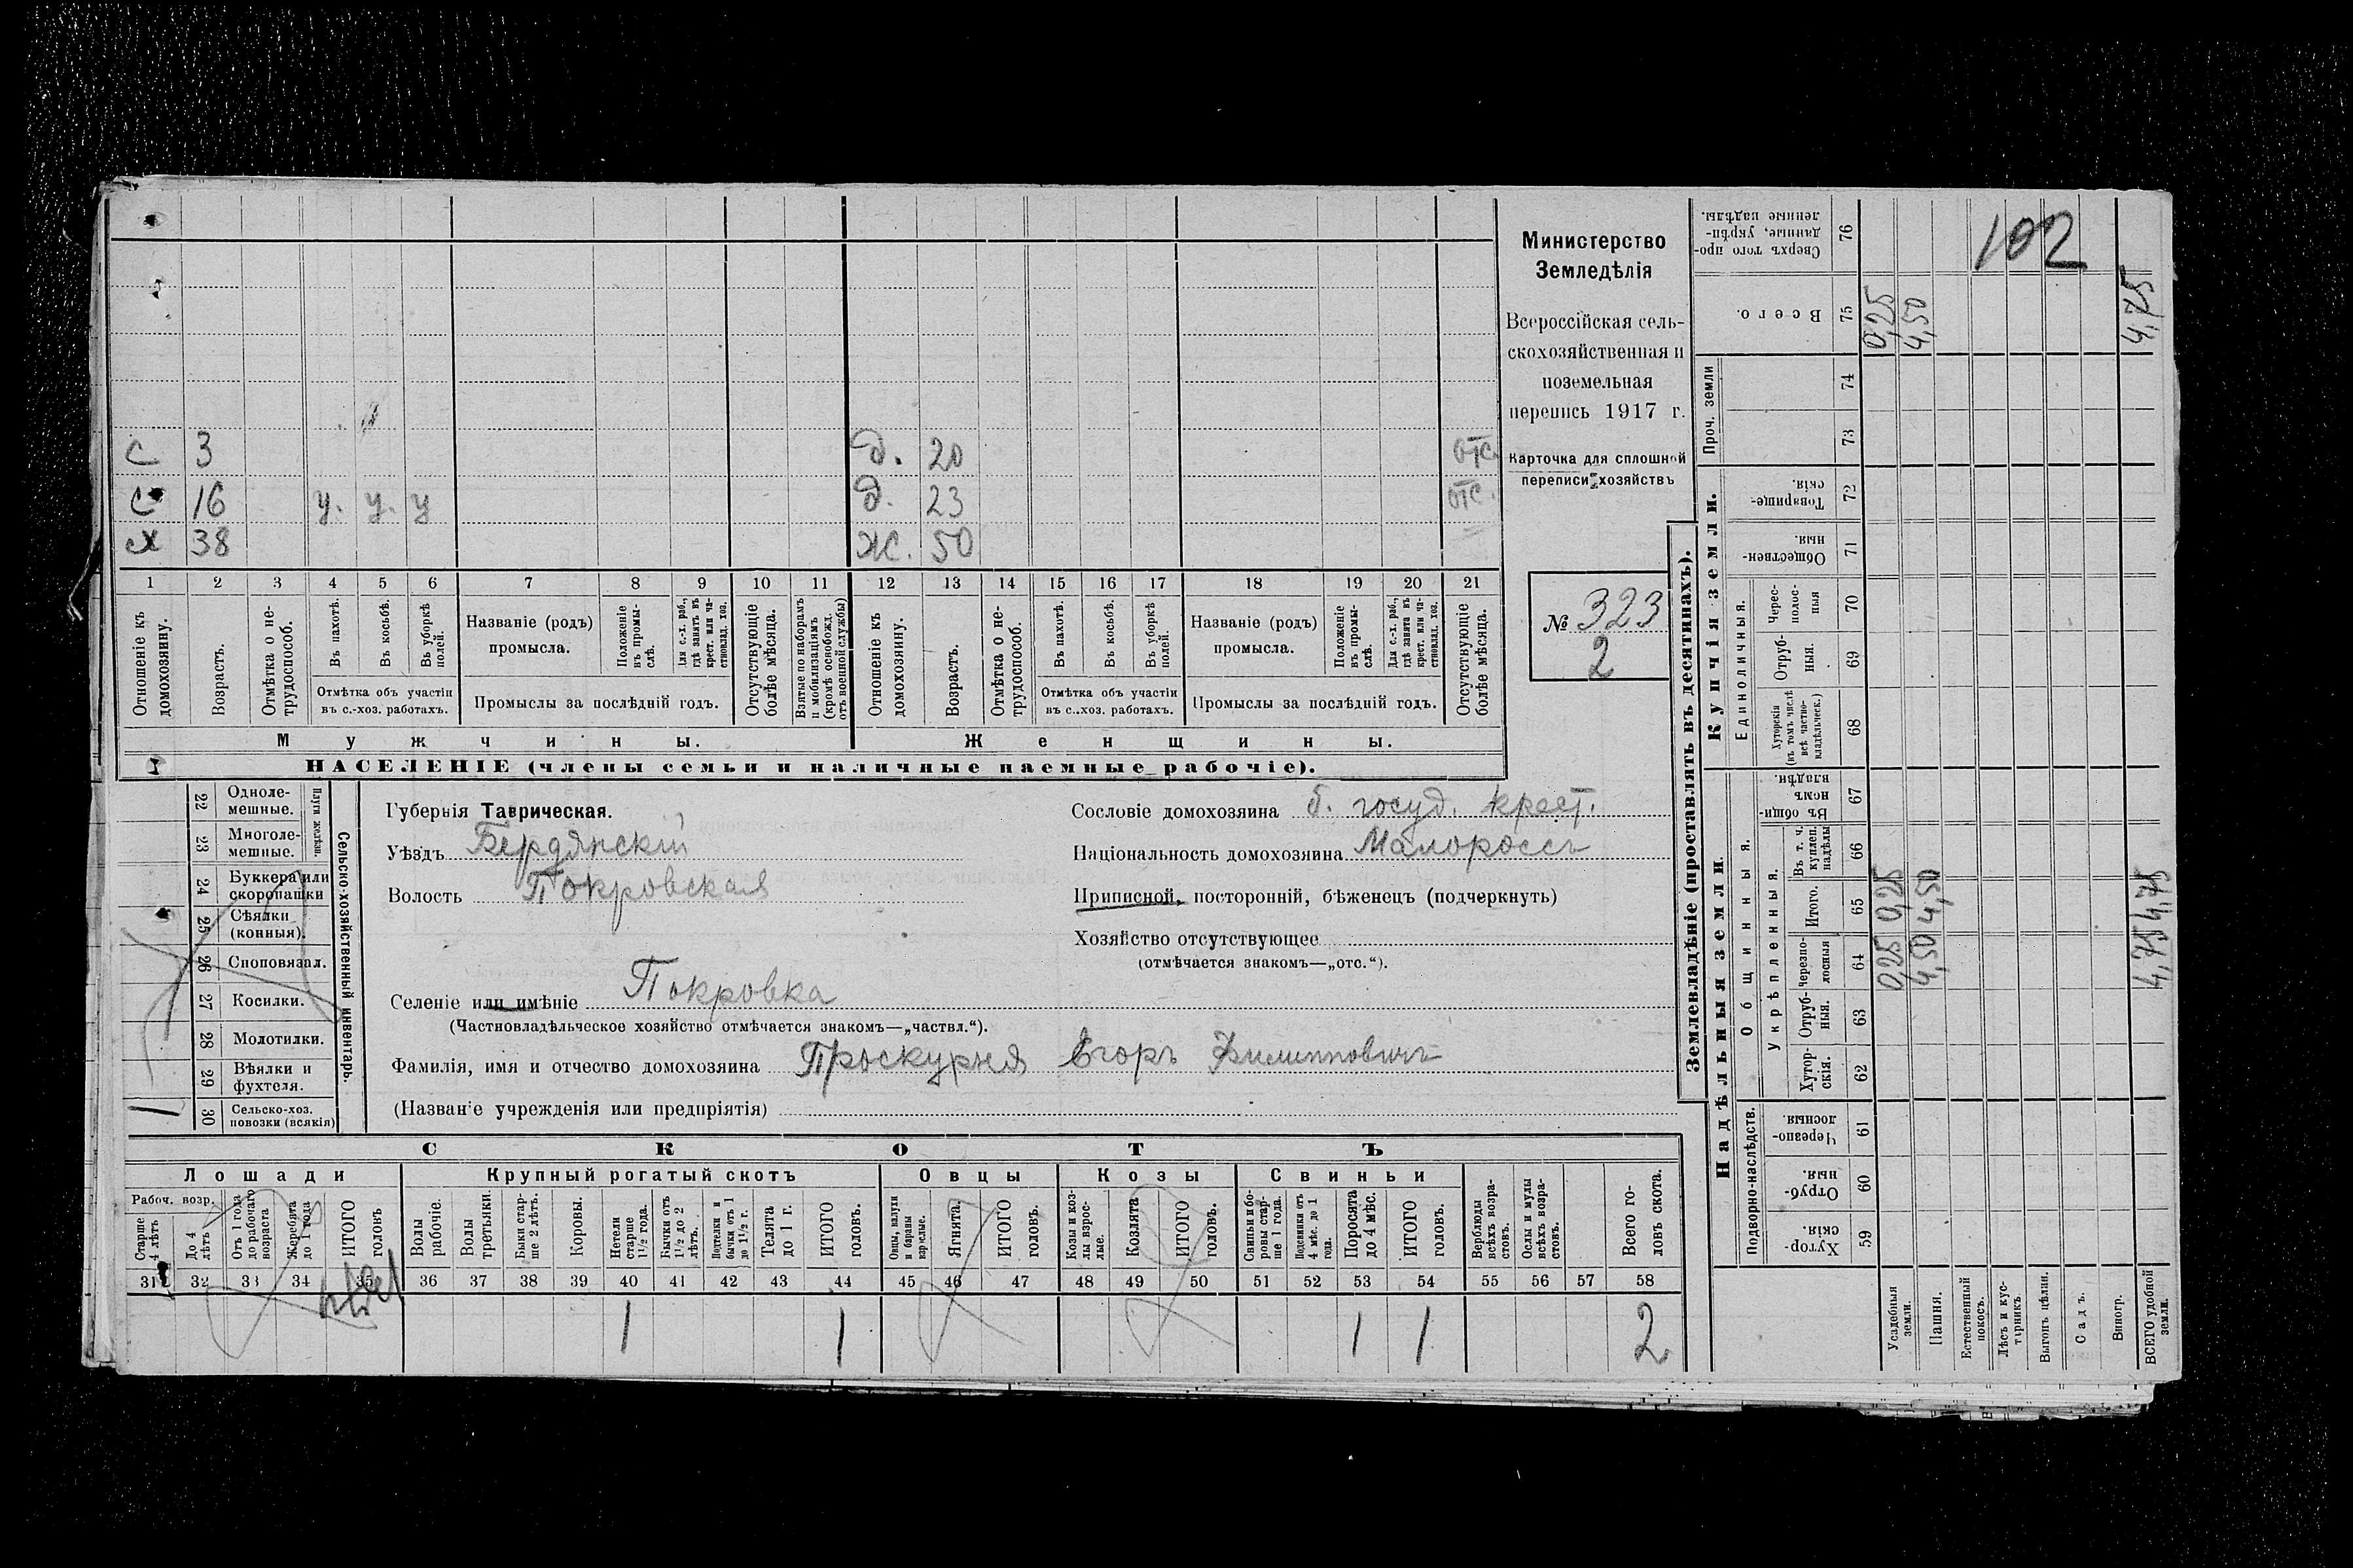 с 3 д. 20 отс.
с 16 у. у. у д. 23 отс.
х 38 ж. 50
1 2 3 4 5 6 7 8 9 10 11 12 13 14 15 16 17 18 19 20 21
Отношеніе къ домохозяину.
Возрастъ.
Отмѣтка о не-
трудоспособ.
Въ пахотѣ.
Въ косьбѣ.
Въ уборкѣ
полей.
Отмѣтка объ участіи
въ с.-хоз. работахъ.
Названіе (родъ)
промысла.
Положеніе
въ промы-
слѣ.
Для с.-х. раб.,
гдѣ занятъ въ
крест. или ча-
стновлад. хоз.
Промыслы за послѣдній годъ.
Отсутствующіе
болѣе мѣсяца.
Взятые по наборамъ
и мобилизаціямъ
(кромѣ освобожд.
отъ военной службы)
Отношеніе къ
домохозяину.
Возрастъ.
Отмѣтка о не-
трудоспособ.
Въ пахотѣ.
Въ косьбѣ.
Въ уборкѣ
полей.
Отмѣтка объ участіи
въ с.-хоз. работахъ.
Названіе (родъ)
промысла.
Положеніе
въ промы-
слѣ.
Для с.-х. раб.,
гдѣ занята въ
крест. или ча-
стновлад. хоз.
Промыслы за послѣдній годъ.
Отсутствующіе
болѣе мѣсяца.
Мужчины. Женщины.
НАСЕЛЕНІЕ (члены семьи и наличные наемные рабочіе).
Министерство
Земледѣлія
Всероссійская сель-
скохозяйственная и
поземельная
перепись 1917 г.
Карточка для сплошной
переписи хозяйствъ
№ 323
2
22 Одноле-
мешные.
23 Многоле-
мешные.
Плуги желѣзн.
24 Буккера или
скоропашки
25 Сѣялки
(конныя).
26 Сноповязал.
27 Косилки.
28 Молотилки.
29 Вѣялки и
фухтеля.
1 30 Сельско-хоз.
повозки (всякія)
Сельско-хозяйственный инвентарь.
Губернія Таврическая.
Уѣздъ Бердянскій
Волость Покровская
Селеніе или имѣніе Покровка
(Частновладѣльческое хозяйство отмѣчается знакомъ—„частвл.“).
Фамилія, имя и отчество домохозяина Проскурня Егоръ Филипповичъ
(Названіе учрежденія или предпріятія)
Сословіе домохозяина б. госуд. крест.
Національность домохозяина Малороссъ
Приписной, посторонній, бѣженецъ (подчеркнуть)
Хозяйство отсутствующее
(отмѣчается знакомъ—„отс.“).
СКОТЪ
Лошади Крупный рогатый скотъ Овцы Козы Свиньи
Рабоч. возр.
Старше
4 лѣтъ
До 4
лѣтъ
Отъ 1 года
до рабочаго
возраста
Жеребята
до 1 года
ИТОГО
головъ
Волы
рабочіе.
Волы
третьяки.
Быки стар-
ше 2 лѣтъ.
Коровы.
Нетели
старше
1½ года.
Бычки отъ
1½ до 2
лѣтъ.
Подтелки и
бычки отъ 1
до 1½ г.
Телята
до 1 г.
ИТОГО
головъ.
Овцы, валухи
и бараны
взрослые.
Ягнята.
ИТОГО
головъ.
Козы и коз-
лы взрос-
лые.
Козлята
ИТОГО
головъ.
Свиньи и бо-
ровы стар-
ше 1 года.
Подсвинки отъ
4 мѣс. до 1
года.
Поросята
до 4 мѣс.
ИТОГО
головъ.
Верблюды
всѣхъ возра-
стовъ.
Ослы и мулы
всѣхъ возра-
стовъ.
Всего го-
ловъ скота.
31 32 33 34 35 36 37 38 39 40 41 42 43 44 45 46 47 48 49 50 51 52 53 54 55 56 57 58
1 1 1 1 2
102
Землевладѣніе (проставлять въ десятинахъ).
Купчія земли.
Надѣльныя земли.
Сверхъ того про-
данные, укрѣп-
ленные надѣлы.
76
Всего. 75 0,25 4,50 4,75
Проч. земли
74
73
Товарище-
скія.
72
Обществен-
ныя.
71
Единоличныя.
Черес-
полос-
ныя
70
Отруб-
ныя.
69
Хуторскія
(въ томъ числѣ
всѣ частно-
владѣльческ.)
68
Общинныя.
Въ общин-
номъ
владѣн.
67
Укрѣпленныя.
Въ т. ч.
куплен.
надѣлы
66
Итого. 65 0,25 4,50 4,75
Черезпо-
лосныя
64 0,25 4,50 4,75
Отруб-
ныя.
63
Хутор-
скія.
62
Подворно-наслѣдств.
Черезпо-
лосныя
61
Отруб-
ныя.
60
Хутор-
скія.
59
Усадебныя
земли.
Пашня.
Естественный
покосъ.
Лѣсъ и кус-
тарникъ
Выгонъ цѣлин.
Садъ.
Виногр.
ВСЕГО удобной
земли.